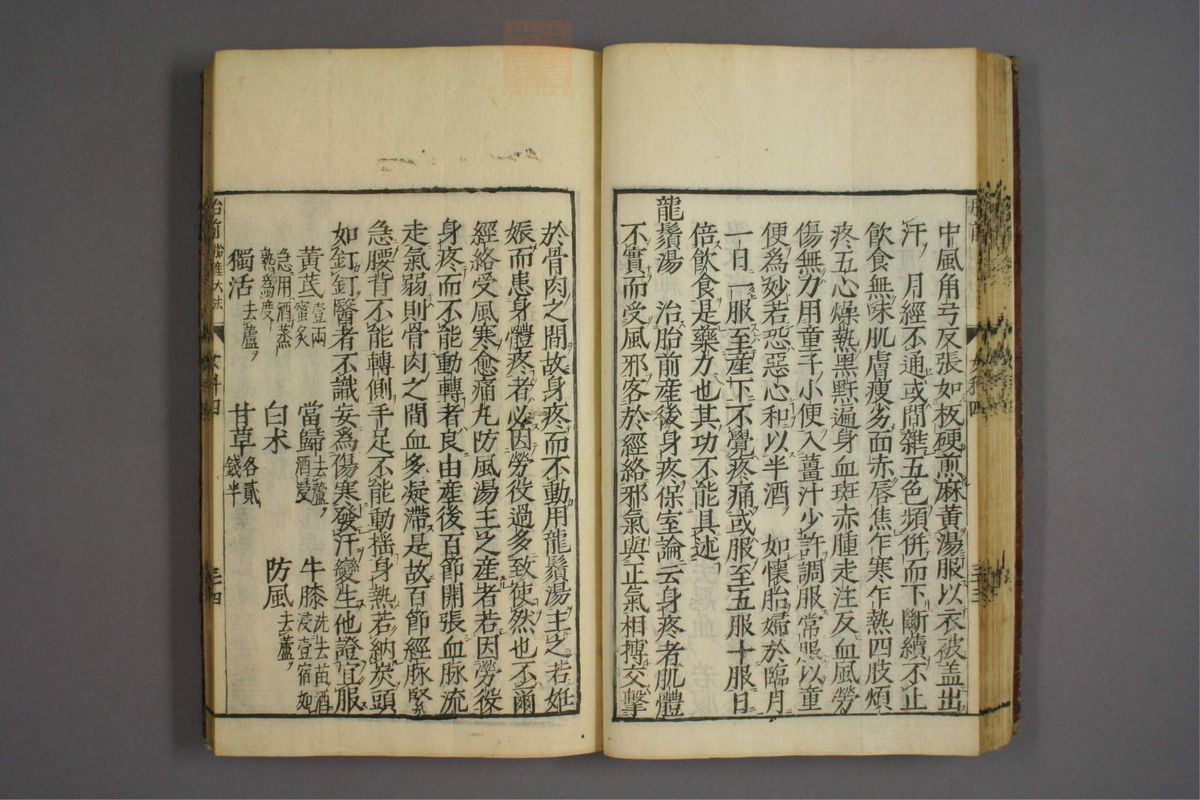 中風角弓反張如板硬煎麻黃湯服以衣被盖出
汗 月經不通或間雜五色頻併而下斷續不止
飲食無味肌膚瘦劣面赤唇焦乍寒乍熱四肢煩
疼五心燥熱黑㸃遍身血斑赤腫走注及血風勞
傷無力用童子小便入薑汁少許調服常服以童
便為妙若恐惡心和以半酒 如懷胎婦於臨月
一日一服至產下不覺疼痛或服至五服十服日
倍飲食是藥力也其功不能具述
龍鬚湯 治胎前產後身疼保室論云身疼者肌體
不實而受風邪客於經絡邪氣與正氣相搏交擊
於骨肉之間故身疼而不動用龍鬚湯主之若姙
娠而患身體疼者必因勞役過多致使然也不爾
經絡受風寒愈痛尤防風湯主之產者若因勞役
身疼而不能動轉者良由產後百節開張血脉流
走氣弱則骨肉之間血多凝滯是故百節經脉緊
急腰背不能轉側手足不能動揺身熱若納炭頭
如釘釘醫者不識妄為傷寒發汗變生他證宜服
黃芪壹兩蜜炙 當歸去蘆酒浸 牛膝洗去苗酒浸壹宿如
急用酒蒸熟為度 白朮 防風去蘆
獨活去蘆 甘草各貳錢半
女科四
三四